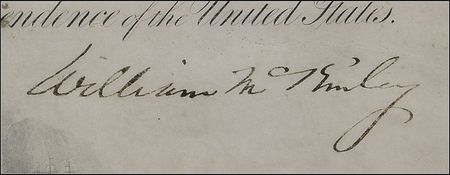 endence of the United States.
William McKinley